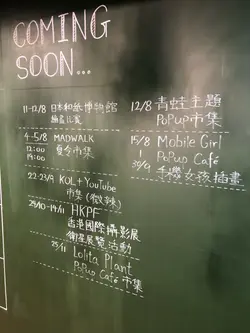 COMING
SOON...
11-12/8 日本和紙博物館
繪畫比賽
4-5/8 MADWALK
12:00 夏令市集
19:00
22-23/9 KOL+YouTube
市集(微辣)
29/10-14/11 HKPF
香港國際攝影展
衛星展覽活動
25/11 Lolita Plant
PoPuP Café 市集
12/8 青蛙主題
PoPuP市集
15/8 Mobile Girl
PoPuP Café
30/9 手機女孩插畫